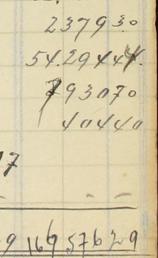 237930
54.29444.
793070
40440
17
9 169 57629